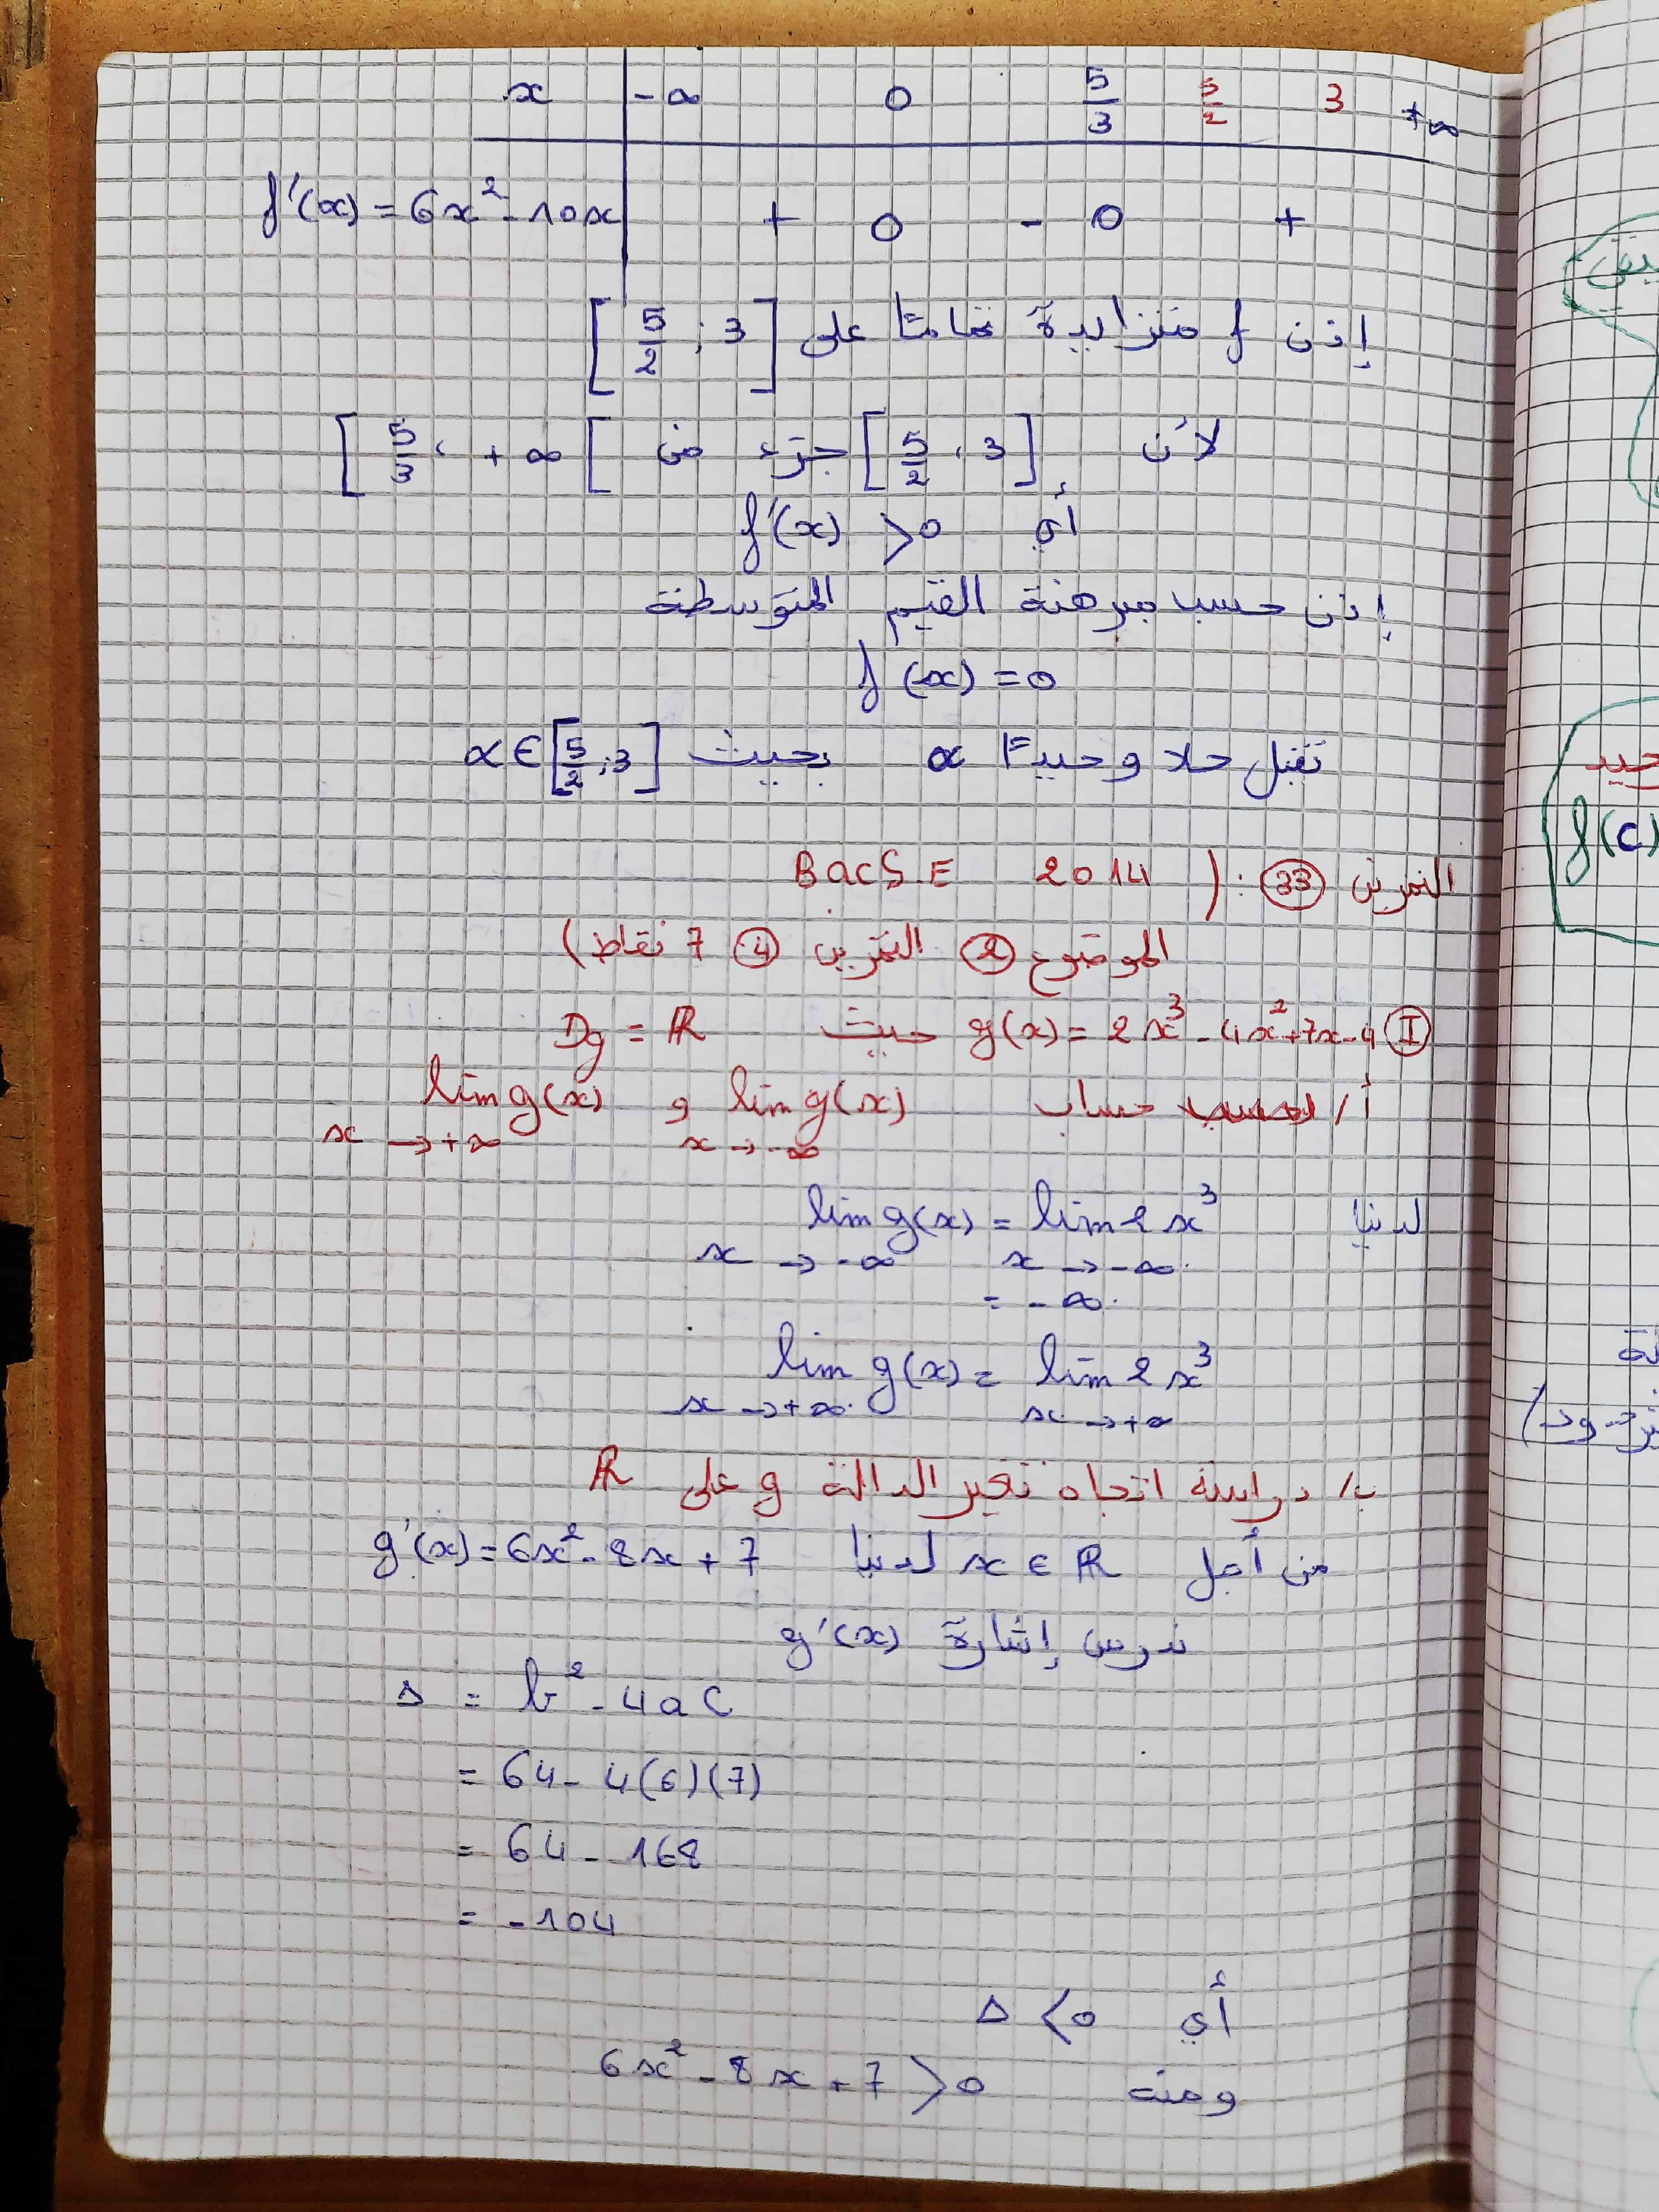 x | -∞ 0 5/3 5/2 3 +∞
f'(x) = 6x² - 10x | + 0 - 0 +
إذن f متزايدة تماما على [5/2 ; 3]
لأن [5/2 ، 3] جزء من [5/3 ، +∞[
أي f'(x) > 0
إذن حسب مبرهنة القيم المتوسطة
f(x) = 0
تقبل حلا وحيدًا α بحيث α ∈ [5/2 ; 3]
التمرين (33) : ( BacS.E 2014
الموضوع (2) التمرين (4) 7 نقاط)
(I) g(x) = 2x³ - 4x² + 7x - 4 حيث Dg = ℝ
أ/ حساب lim g(x) x → -∞ و lim g(x) x → +∞
لدينا lim g(x) x → -∞ = lim 2x³ x → -∞
= -∞
lim g(x) x → +∞ = lim 2x³ x → +∞
ب/ دراسة اتجاه تغير الدالة g على ℝ
من أجل x ∈ ℝ لدينا g'(x) = 6x² - 8x + 7
ندرس إشارة g'(x)
Δ = b² - 4ac
= 64 - 4(6)(7)
= 64 - 168
= -104
أي Δ < 0
ومنه 6x² - 8x + 7 > 0
f(c)